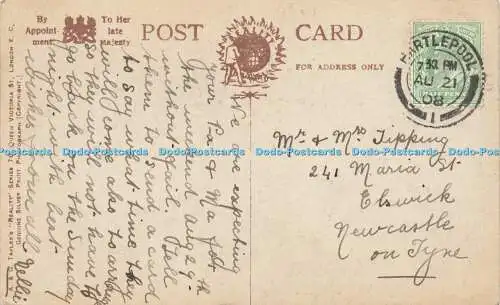 By
Appoint
ment.
To Her
late
Majesty
POST CARD
FOR ADDRESS ONLY.
HARTLEPOOL
7 30 PM
AU 21
08
1
Mr & Mrs Tipping
241 Maria St
Elswick
Newcastle
on Tyne
We are expecting
your Pa & Ma for
the weekend Aug 29th
without fail. Tell
them to send a card
to say what time they
will come to arrive
so they will not have to
go back on the Sunday
night with best
wishes from all
Nellie
TAYLER'S "REALITY" SERIES
QUEEN VICTORIA ST., LONDON E.C.
GENUINE SILVER PRINT PHOTOGRAPH (COPYRIGHT)
Dodo-Postcards Dodo-Postcards Dodo-Postcards Dodo-Postcards Dodo-Postcards Dodo-Postcards